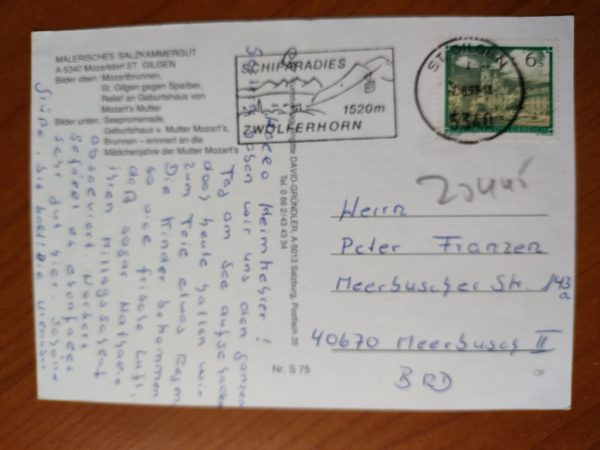 MALERISCHES SALZKAMMERGUT
A-5340 Mozartdorf ST. GILGEN
Bilder oben: Mozartbrunnen,
St. Gilgen gegen Sparber,
Relief an Geburtshaus von
Mozart's Mutter
Bilder unten: Seepromenade,
Geburtshaus v. Mutter Mozart's
Brunnen – erinnert an die
Mädchenjahre der Mutter Mozart's
SCHIPARADIES
1520m
ZWÖLFERHORN
ST. GILGEN
5340
6 S
DAVID-GRÜNDLER, A-5013 Salzburg, Postfach 35
Tel. 0 66 2/43 43 34
Hallo Heimkehrer!
wir uns den ganzen
Tag am See aufgehalten
das heute hatten wir
zum Teil etwas Regen
Die Kinder bekommen
so viel frische Luft,
daß sogar Nathalie
ihren Mittagsschlaf
absolviert. Norbert
gefällt es ebenfalls
sehr gut hier. Schöne
Grüße
Herrn
Peter Franzen
Meerbuscher Str. 143
a
40670 Meerbusch II
BRD
Nr. S 75